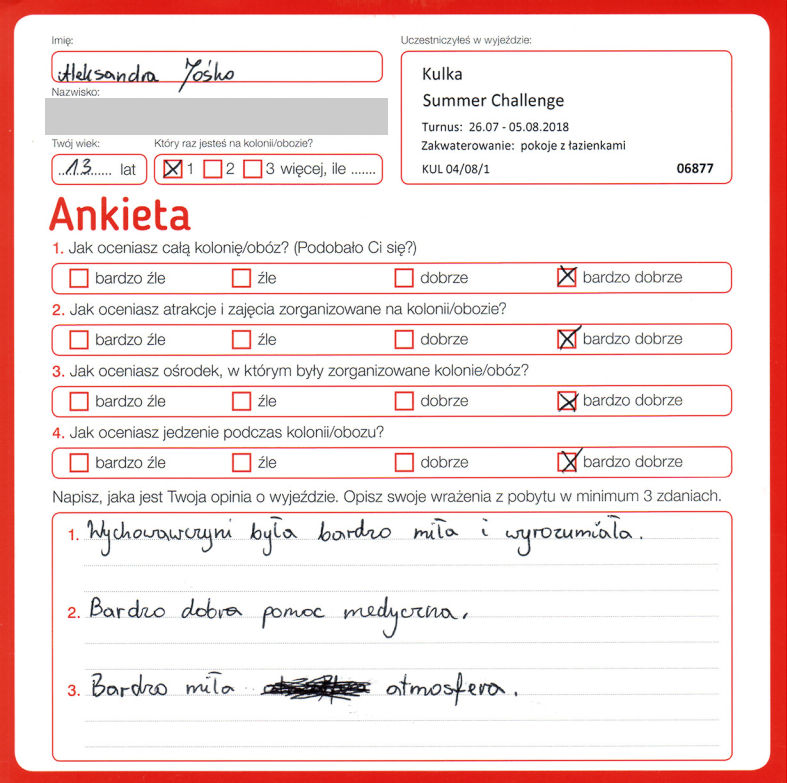 Imię:
Aleksandra Jośko
Nazwisko:
Twój wiek:
13 lat
Który raz jesteś na kolonii/obozie?
1 2 3 więcej, ile .......
Uczestniczyłeś w wyjeździe:
Kulka
Summer Challenge
Turnus: 26.07 - 05.08.2018
Zakwaterowanie: pokoje z łazienkami
KUL 04/08/1 06877
Ankieta
1. Jak oceniasz całą kolonię/obóz? (Podobało Ci się?)
bardzo źle źle dobrze bardzo dobrze
2. Jak oceniasz atrakcje i zajęcia zorganizowane na kolonii/obozie?
bardzo źle źle dobrze bardzo dobrze
3. Jak oceniasz ośrodek, w którym były zorganizowane kolonie/obóz?
bardzo źle źle dobrze bardzo dobrze
4. Jak oceniasz jedzenie podczas kolonii/obozu?
bardzo źle źle dobrze bardzo dobrze
Napisz, jaka jest Twoja opinia o wyjeździe. Opisz swoje wrażenia z pobytu w minimum 3 zdaniach.
1. Wychowawczyni była bardzo miła i wyrozumiała.
2. Bardzo dobra pomoc medyczna.
3. Bardzo miła atmosfera.